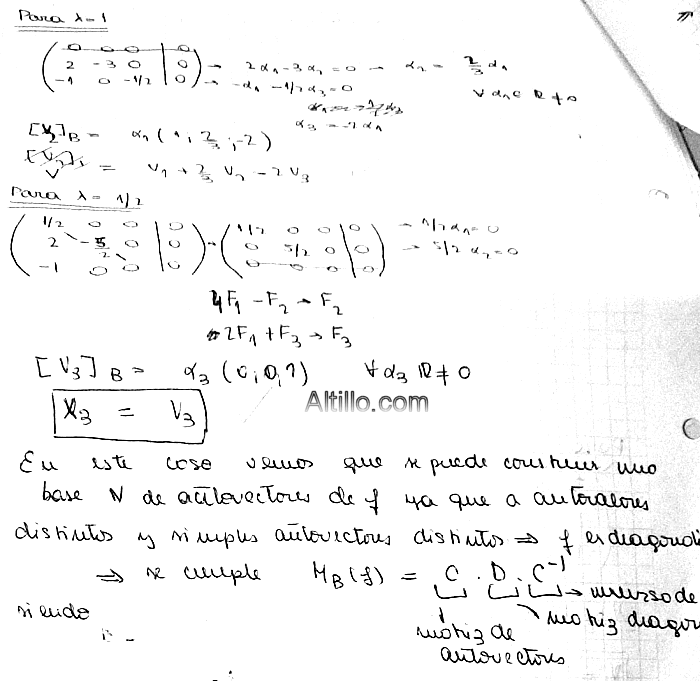 Para λ=1
( 0 0 0 | 0 )
( 2 -3 0 | 0 ) → 2α₁-3α₂=0 → α₂= 2/3 α₁
( -1 0 -1/2 | 0 ) → -α₁ - 1/2 α₃=0 ∀ α₁ ∈ ℝ ≠0
α₃ = -2α₁
[V₂]B = α₁ (1, 2/3, -2)
= V₁ + 2/3 V₂ - 2V₃
Para λ= 1/2
( 1/2 0 0 | 0 ) ( 1/2 0 0 0 | 0 ) → 1/2 α₁=0
( 2 -5/2 0 | 0 ) ~ ( 0 5/2 0 | 0 ) → 5/2 α₂=0
( -1 0 0 | 0 ) ( 0 0 0 | 0 )
4F₁ - F₂ → F₂
2F₁ + F₃ → F₃
[V₃]B = α₃ (0,0,1) ∀ α₃ ℝ ≠ 0
Altillo.com
X₃ = V₃
En este caso vemos que se puede construir una
base N de autovectores de f ya que a autovalores
distintos y simples autovectores distintos ⇒ f es diagonali
⇒ se cumple M_B(f) = C . D . C⁻¹
→ inverso de
siendo matriz diagon
matriz de
autovectores